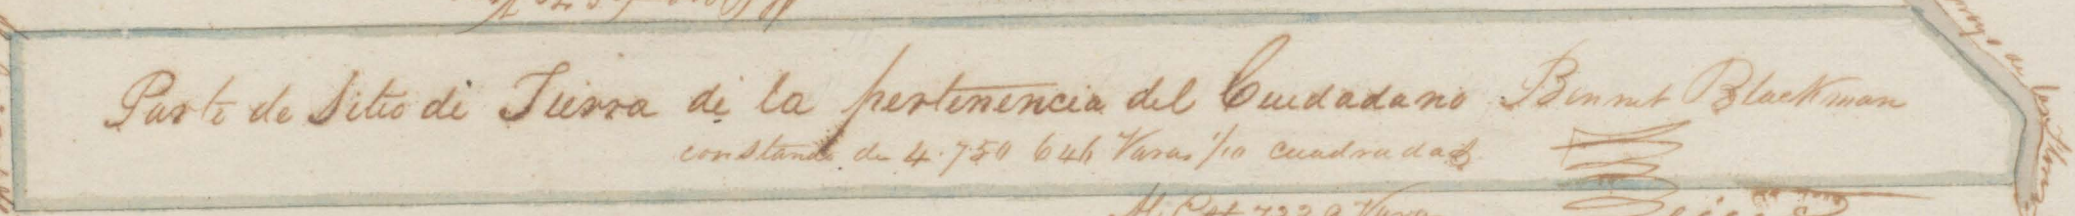 Parte de Sitio di Tierra de la pertenencia del Ciudadano Bennet Blackman
constando de 4.750 646 Varas 1/10 cuadradas
Al Est 7339 Varas